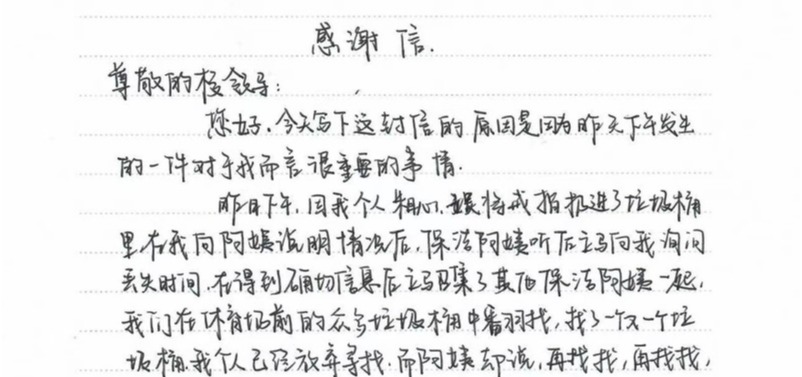 感谢信.
尊敬的校领导：
您好，今天写下这封信的原因是因为昨天下午发生
的一件对于我而言很重要的事情.
昨日下午，因我个人粗心，误将戒指扔进了垃圾桶
里，在我向阿姨说明情况后，保洁阿姨听后立马向我询问
丢失时间，在得到确切信息后立马召集了其他保洁阿姨一起，
我们在体育场前的众多垃圾桶中翻找，找了一个又一个垃
圾桶，我个人已经放弃寻找，而阿姨却说，再找找，再找找，